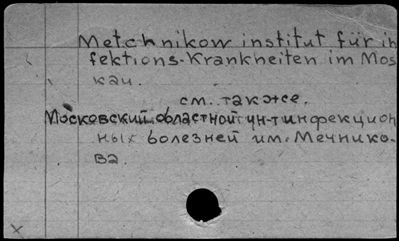 Metchnikow institut für in
fektions-Krankheiten im Mos
kau.
см. также.
Московский областной ин-т инфекцион
ных болезней им. Мечнико-
ва.
x